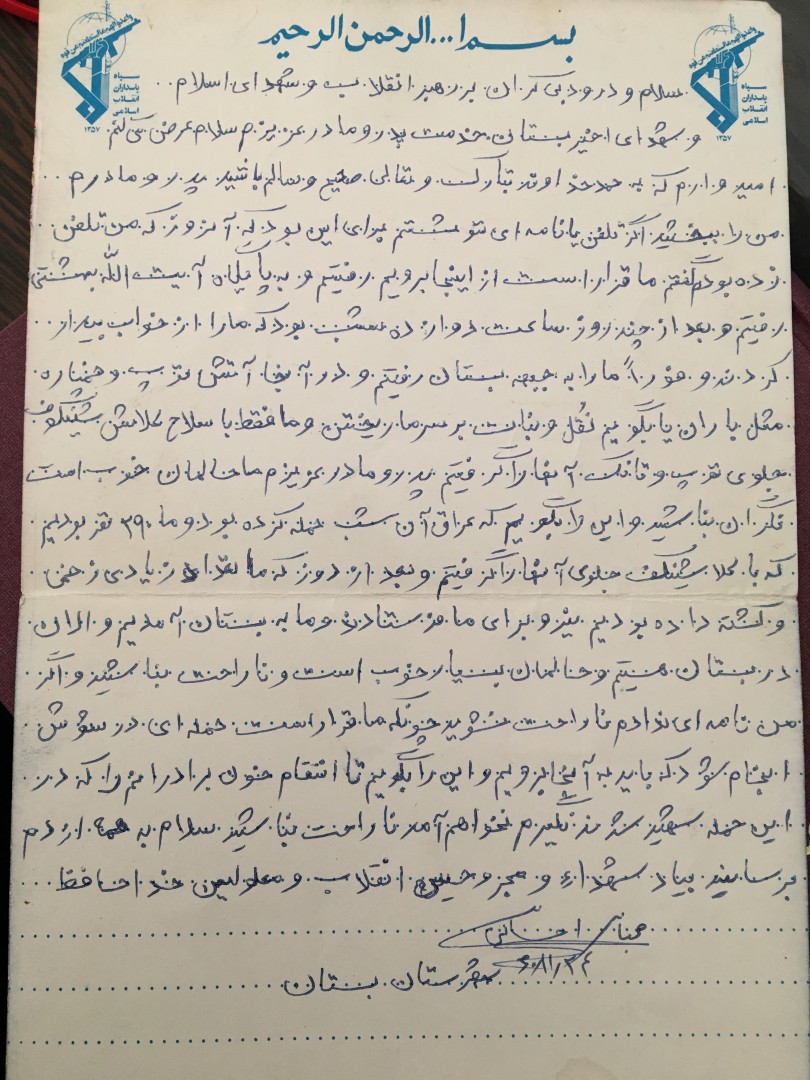 بسم ا... الرحمن الرحیم
سپاه
پاسداران
انقلاب
اسلامی
۱۳۵۷
سپاه
پاسداران
انقلاب
اسلامی
۱۳۵۷
سلام و درود بی کران بر رهبر انقلاب و شهدای اسلام..
و شهدای اخیر بستان خدمت پدر و مادر عزیزم سلام عرض می کنم
امیدوارم که به حمد خداوند تبارک و تعالی صحیح و سالم باشید پدر و مادرم..
من را ببخشید اگر تلفن یا نامه ای ننوشتم برای این بود که آنروز که من تلفن
زده بودم گفتم ما قرار است از اینجا برویم رفتیم و به پادگان آیت الله بهشتی
رفتیم و بعد از چند روز ساعت دوازده شب بود که ما را از خواب بیدار..
کردند و فوراً ما را به جبهه بستان رفتیم و در آنجا آتش توپ و خمپاره
مثل باران یا بگویم نقل و نبات بر سر ما ریختن و ما فقط با سلاح کلاشینکوف
جلوی توپ و تانک آنها را گرفتیم پدر و مادر عزیزم ما حالمان خوب است
نگران نباشید و این را بگویم که عراق آن شب حمله کرده بود و ما ۳۹۰ نفر بودیم
که با کلاشینکف جلوی آنها را گرفتیم و بعد از دو روز که ما تعداد زیادی زخمی
و کشته داده بودیم نیرو برای ما فرستادن و ما به بستان آمدیم و الان
در بستان هستیم و حالمان بسیار خوب است و ناراحت نباشید و اگر
من نامه ای ندادم ناراحت نشوید چونکه ما قرار است حمله ای در شوش
انجام شود که باید به آنجا برویم و این را بگویم تا انتقام خون برادرانم را که در
این حمله شهید شدند نگیرم نخواهم آمد ناراحت نباشید سلام به همه ازدم
برسانید بیاد شهداء و مجروحین انقلاب و معلولین خداحافظ...
شهرستان بستان